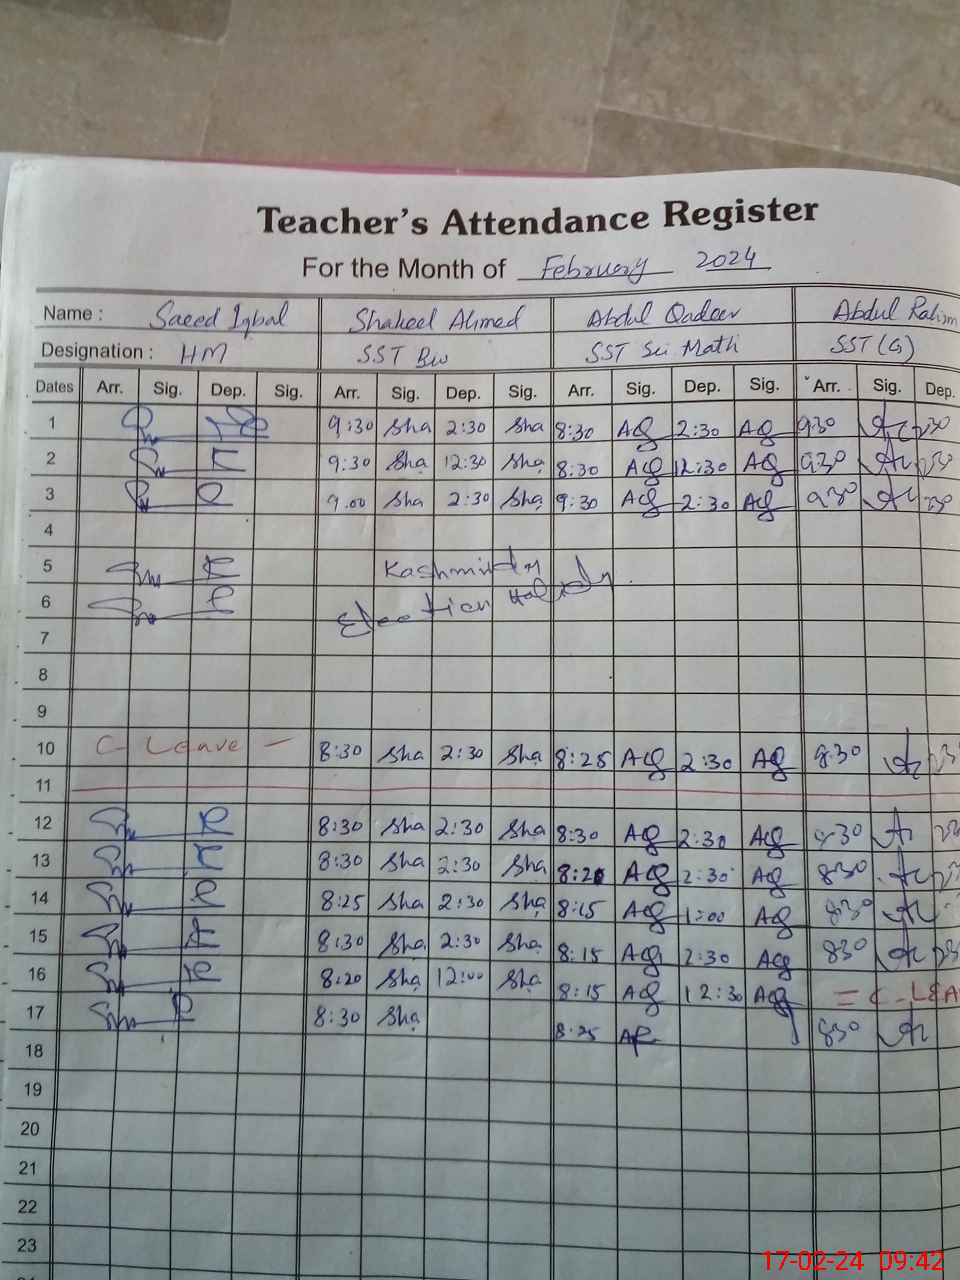 Teacher's Attendance Register
For the Month of February 2024
Name : Saeed Iqbal Shakeel Ahmed Abdul Qadeer Abdul Rahim
Designation : HM SST Bio SST Sci Math SST (G)
Dates Arr. Sig. Dep. Sig. Arr. Sig. Dep. Sig. Arr. Sig. Dep. Sig. Arr. Sig. Dep.
1 9:30 Sha 2:30 Sha 8:30 AQ 2:30 AQ 930
2 9:30 Sha 12:30 Sha 8:30 AQ 12:30 AQ 930
3 9.00 Sha 2:30 Sha 9:30 AQ 2:30 AQ 930
4
5 Kashmir Day
6 Election Holiday
7
8
9
10 C Leave - 8:30 Sha 2:30 Sha 8:25 AQ 2:30 AQ 8:30
11
12 8:30 Sha 2:30 Sha 8:30 AQ 2:30 AQ 830
13 8:30 Sha 2:30 Sha 8:20 AQ 2:30 AQ 830
14 8:25 Sha 2:30 Sha 8:15 AQ 1:00 AQ 830
15 8:30 Sha 2:30 Sha 8:15 AQ 2:30 AQ 830
16 8:20 Sha 12:00 Sha 8:15 AQ 12:30 AQ = C-LEA
17 8:30 Sha 8:25 830
18
19
20
21
22
23
17-02-24 09:42